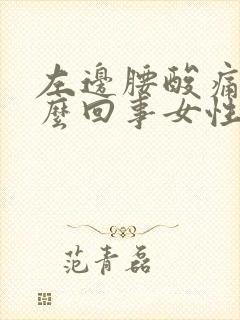 左邊腰酸痛
麼回事女性
范青磊